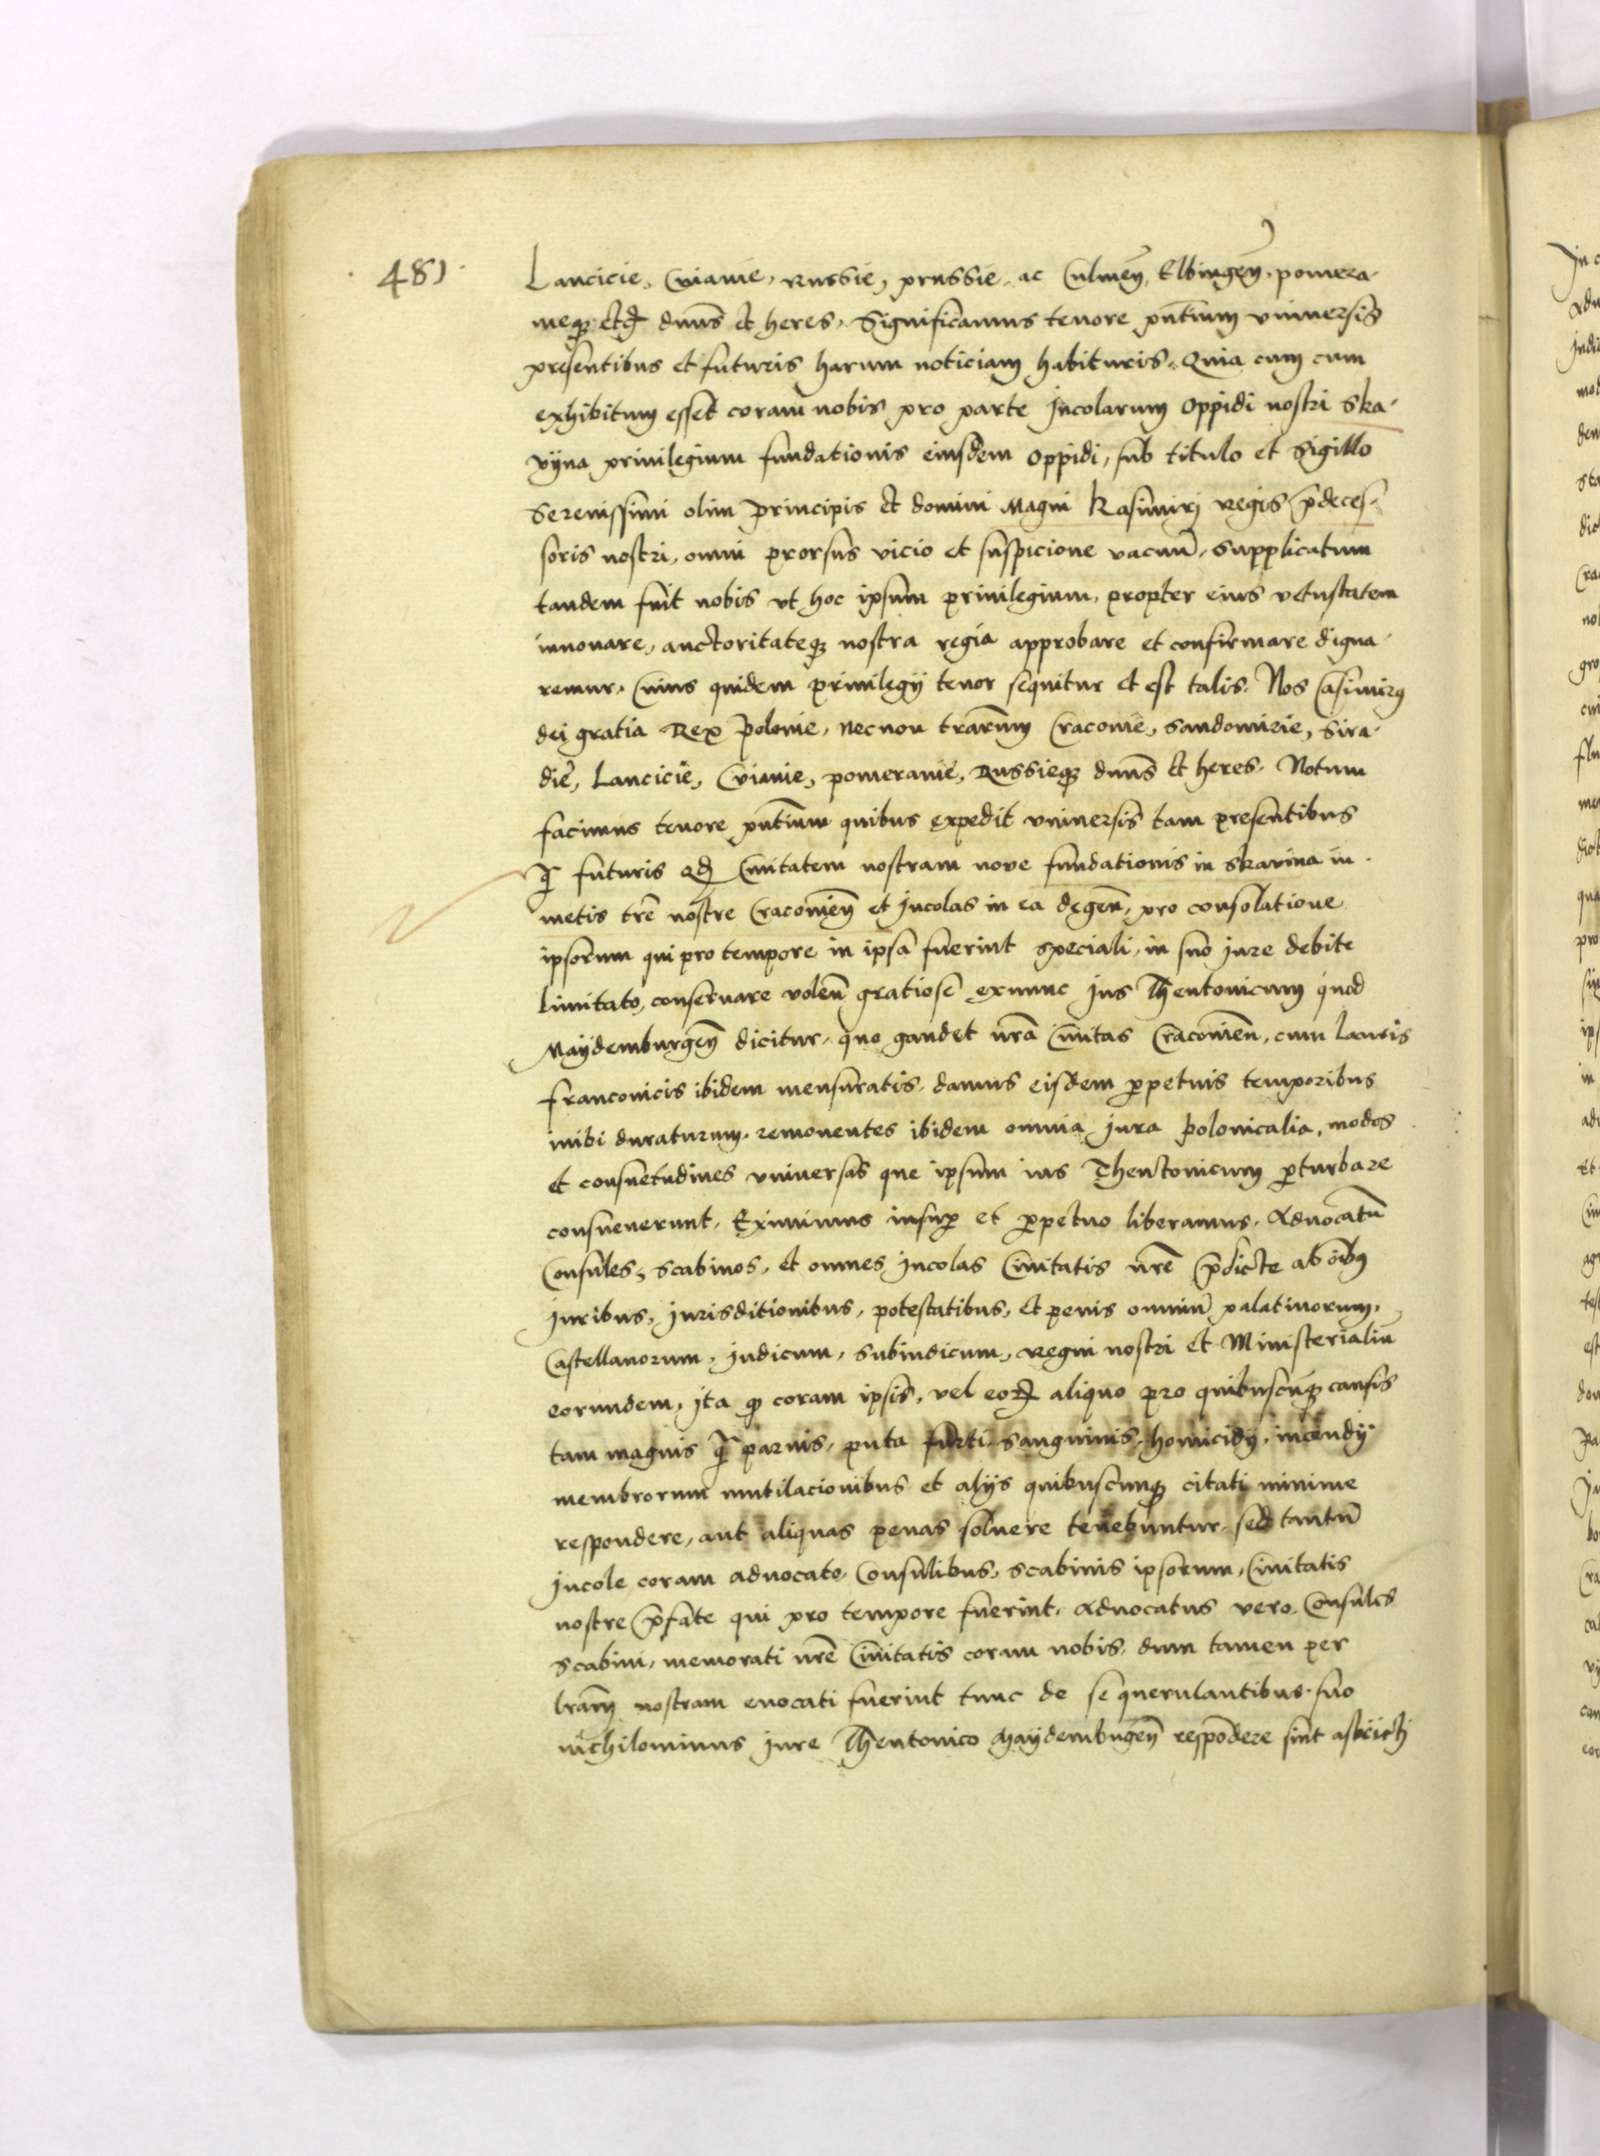 481
Lancicie, Cuiauie, Russie, prussie ac Culmeñ, Elbingeñ, pomera-
nieq̃ etc̃ dnũs et heres, Significamus tenore pñtium vniuersis
presentibus et futuris harum noticiam habituris. Quia cum cum
exhibitum esset coram nobis pro parte Incolarum oppidi nostri Ska-
vyna priuilegium fundationis eiusdem oppidi, sub titulo et Sigillo
Serenissimi olim principis et domini Magni Kasimirj Regis p̃deces-
soris nostri, omni prorsus vicio et suspicione vacuũ, Supplicatum
tandem fuit nobis vt hoc ipsum priuilegium, propter eius vetustatem
innouare, auctoritateq̃ nostra regia approbare et confirmare digna-
remur, Cuius quidem priuilegij tenor sequitur et est talis. Nos Casimirꝯ
dei gratia Rex polonie, necnon trarũm Cracouie, Sandomirie, Sira-
die, Lancicie, Cuiauie, pomeranie, Russieq̃ dnũs et heres. Notum
facimus tenore pñtium quibus expedit vniuersis tam presentibus
q̃ futuris qđ Ciuitatem nostram noue fundationis in Skauina in
metis trẽ nostre Cracouieñ et Incolas in ea degeñ, pro consolatione
ipsorum qui pro tempore in ipsa fuerint speciali, in suo iure debite
limitato, conseruare voleñ gratiose exnunc Jus Theutonicum quod
Maydemburgeñ dicitur, quo gaudet nrã Ciuitas Cracouieñ, cum laneis
franconicis ibidem mensuratis, damus eisdem ꝑpetuis temporibus
inibi duraturum, remouentes ibidem omnia Jura polonicalia, modos
et consuetudines vniuersas que ipsum ius Theutonicum ꝑturbare
consueuerunt, Eximimus insuꝑ et ꝑpetuo liberamus, Aduocatũ
Consules, Scabinos, et omnes Incolas Ciuitatis nrẽ p̃dicte ab oĩbꝯ
Juribus, Jurisditionibus, potestatibus, et penis omniũ palatinorum,
Castellanorum, Judicum, Subiudicum, Regni nostri et Ministerialiũ
eorundem, Ita ꝙ coram ipsis, vel eoꝝ aliquo pro quibuscũq̃ causis
tam magnis q̃ paruis, puta furti, sanguinis, homicidij, incendij
membrorum mutilacionibus et alijs quibuscunq̃ citati minime
respondere, aut aliquas penas soluere tenebuntur, sed tantũ
Incole coram aduocato, Consulibus, Scabinis ipsorum, Ciuitatis
nostre p̃fate qui pro tempore fuerint, Aduocatus vero, Consules
Scabini, memorati nrẽ Ciuitatis coram nobis, dum tamen per
lrãm nostram euocati fuerint tunc de se querulantibus, suo
nichilominus Jure Theutonico Maydemburgeñ respõdere sint astricti